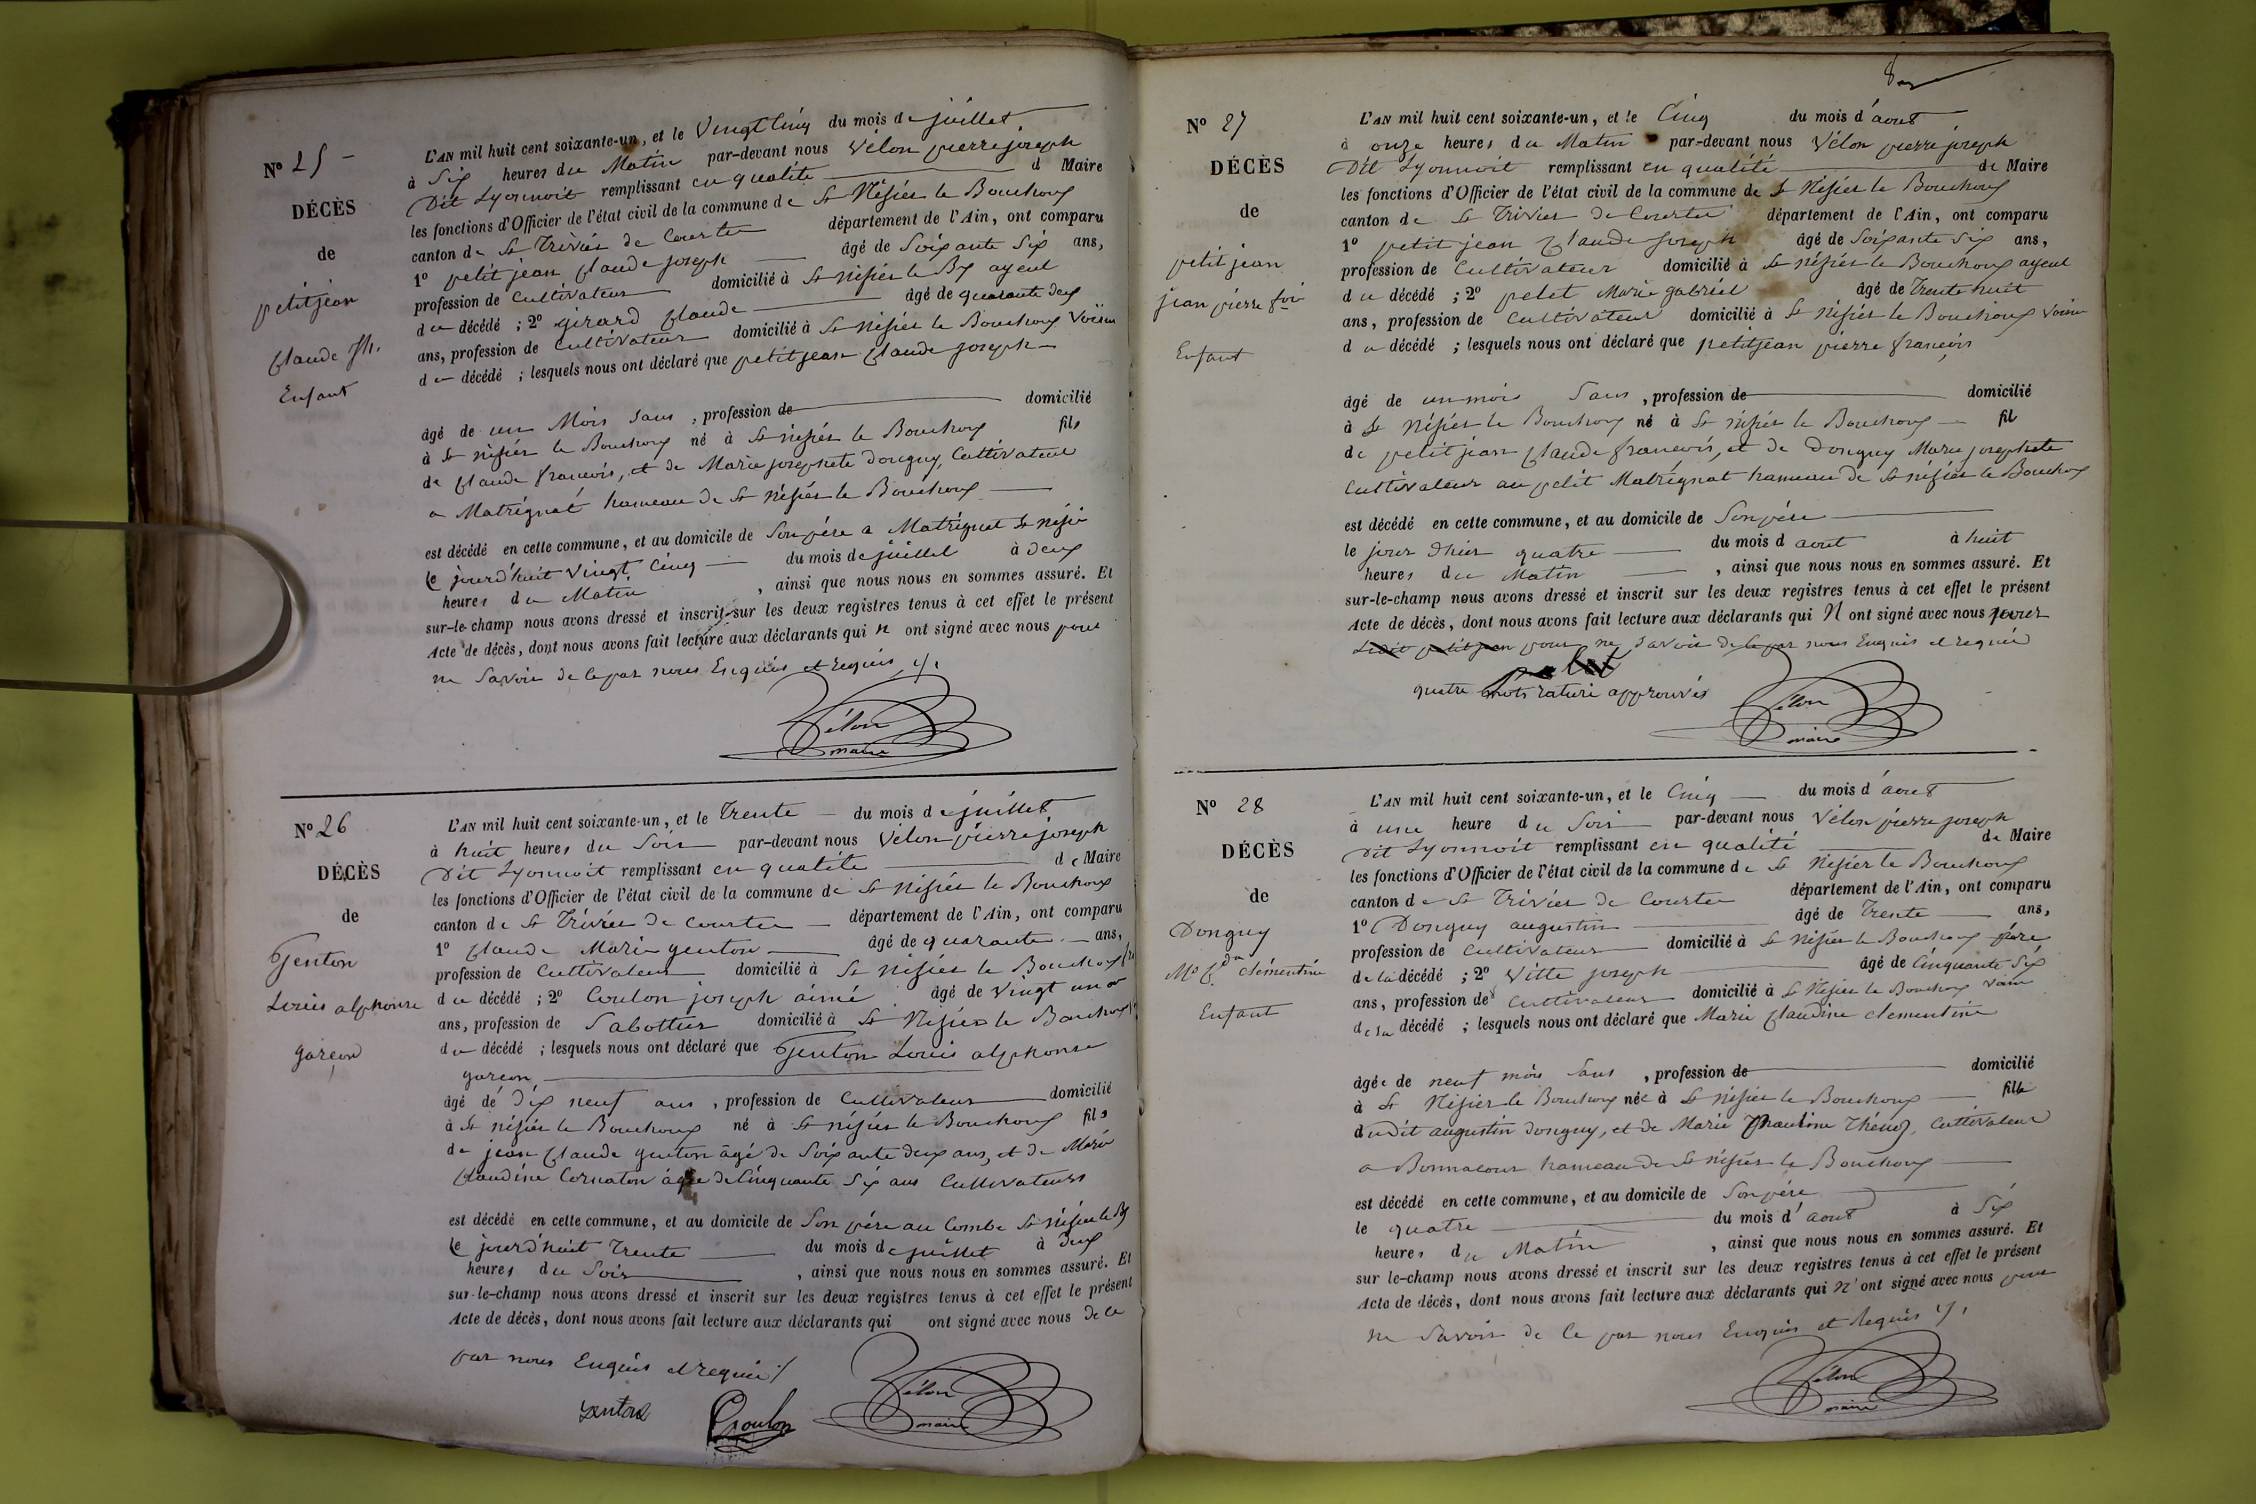 N° 25
DÉCÈS
de
petitjean
Claude Jh.
Enfant
L'AN mil huit cent soixante-un, et le Vingt Cinq du mois de juillet
à Six heures du Matin par-devant nous Vélon pierre joseph
Dit Lyonnoit remplissant en qualité d Maire
les fonctions d'Officier de l'état civil de la commune de St Nésier le Bouchoux
canton de St Trivier de Courtes département de l'Ain, ont comparu
1° petit jean Claude joseph âgé de Soixante Six ans,
profession de Cultivateur domicilié à St nésier le Bx ayeul
du décédé ; 2° girard Claude âgé de quarante deux
ans, profession de Cultivateur domicilié à St nésier le Bouchoux Voisin
du décédé ; lesquels nous ont déclaré que petitjean Claude joseph
âgé de un Mois Sans , profession de domicilié
à St nésier le Bouchoux né à St nésier le Bouchoux fils
de Claude francois, et de Marie josephete Donguy, Cultivateur
a Matrégnat hameau de St Nésier le Bouchoux
est décédé en cette commune, et au domicile de Son père a Matrégnat St nésié
le jourd'huit Vingt Cinq du mois de juillet à deux
heures du Matin , ainsi que nous nous en sommes assuré. Et
sur-le-champ nous avons dressé et inscrit sur les deux registres tenus à cet effet le présent
Acte de décès, dont nous avons fait lecture aux déclarants qui n ont signé avec nous pour
ne Savoir de le par nous Enquis et requis
Vélon
maire
N° 26
DÉCÈS
de
Genton
Louis alphonse
garcon
L'AN mil huit cent soixante-un, et le Trente du mois de juillet
à huit heures du Soir par-devant nous Vélon pierre joseph
Dit Lyonnoit remplissant en qualité de Maire
les fonctions d'Officier de l'état civil de la commune de St Nésier le Bouchoux
canton de St Trivier de Courtes département de l'Ain, ont comparu
1° Claude Marie genton âgé de quarante ans,
profession de Cultivateur domicilié à St nésier le Bouchoux
du décédé ; 2° Coulon joseph aimé âgé de Vingt un
ans, profession de Sabottier domicilié à St Nésier le Bouchoux
du décédé ; lesquels nous ont déclaré que Genton Louis alphonse
garcon,
âgé de Dix neuf ans , profession de Cultivateur domicilié
à St nésier le Bouchoux né à St nésier le Bouchoux fils
de jean Claude genton âgé de Soixante deux ans, et de Marie
Claudine Cornaton âgée de Cinquante Six ans Cultivateurs
est décédé en cette commune, et au domicile de Son père au Combe St Nésier le Bx
le jourd'huit Trente du mois de juillet à deux
heures du Soir , ainsi que nous nous en sommes assuré. Et
sur-le-champ nous avons dressé et inscrit sur les deux registres tenus à cet effet le présent
Acte de décès, dont nous avons fait lecture aux déclarants qui ont signé avec nous de ce
par nous Enquis et requis
genton Coulon Vélon
maire
N° 27
DÉCÈS
de
petit jean
jean pierre
Enfant
L'AN mil huit cent soixante-un, et le Cinq du mois d'aout
à onze heures du Matin par-devant nous Vélon pierre joseph
Dit Lyonnoit remplissant en qualité de Maire
les fonctions d'Officier de l'état civil de la commune de St Nésier le Bouchoux
canton de St Trivier de Courtes département de l'Ain, ont comparu
1° petit jean Claude joseph âgé de Soixante Six ans,
profession de Cultivateur domicilié à St nésier le Bouchoux ayeul
du décédé ; 2° petet Marie gabriel âgé de Trente huit
ans, profession de Cultivateur domicilié à St Nésier le Bouchoux Voisin
du décédé ; lesquels nous ont déclaré que petitjean pierre francois
âgé de un mois Sans , profession de domicilié
à St Nésier le Bouchoux né à St nésier le Bouchoux fil
de petit jean Claude francois, et de Donguy Marie josephete
Cultivateur au petit Matrégnat hameau de St nésier le Bouchoux
est décédé en cette commune, et au domicile de Son père
le jour d'hier quatre du mois d aout à huit
heures du Matin , ainsi que nous nous en sommes assuré. Et
sur-le-champ nous avons dressé et inscrit sur les deux registres tenus à cet effet le présent
Acte de décès, dont nous avons fait lecture aux déclarants qui N ont signé avec nous pour
Ledit petitjean pour ne Savoir de le par nous Enquis et requis
petet
quatre mots raturé approuvés
Vélon
maire
N° 28
DÉCÈS
de
Donguy
Me Cdne clémentine
Enfant
L'AN mil huit cent soixante-un, et le Cinq du mois d'aout
à une heure du Soir par-devant nous Vélon pierre joseph
Dit Lyonnoit remplissant en qualité de Maire
les fonctions d'Officier de l'état civil de la commune de St Nésier le Bouchoux
canton de St Trivier de Courtes département de l'Ain, ont comparu
1° Donguy augustin âgé de Trente ans,
profession de Cultivateur domicilié à St Nésier le Bouchoux père
de la décédé ; 2° Vitte joseph âgé de Cinquante Six
ans, profession de Cultivateur domicilié à St Nésier le Bouchoux Voisin
de la décédé ; lesquels nous ont déclaré que Marie Claudine clementine
âgée de neuf mois Sans , profession de domicilié
à St Nésier le Bouchoux née à St Nésier le Bouchoux fille
dudit augustin Donguy, et de Marie Cultivateur
a Bonnacour hameau de St nésier le Bouchoux
est décédé en cette commune, et au domicile de Son père
le quatre du mois d'aout à Six
heures du Matin , ainsi que nous nous en sommes assuré. Et
sur le-champ nous avons dressé et inscrit sur les deux registres tenus à cet effet le présent
Acte de décès, dont nous avons fait lecture aux déclarants qui N'ont signé avec nous pour
ne Savoir de le par nous Enquis et Requis
Vélon
maire